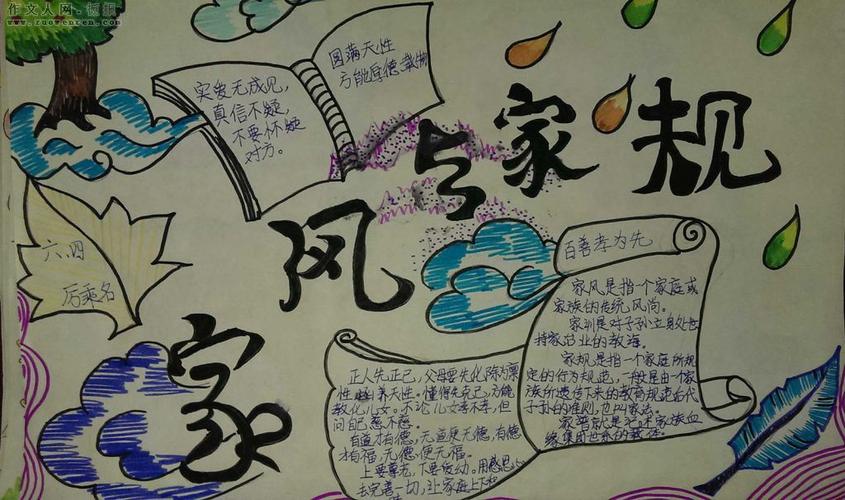 作文人网·板报
www.zuowenren.com
家风与家规
实爱无成见,
真信不疑,
不要怀疑
对方。
圆满天性
方能厚德载物
六.四
厉乘名
百善孝为先
家风是指一个家庭或
家族的传统风尚。
家训是对子孙立身处世
持家治业的教诲。
家规是指一个家庭所规
定的行为规范,一般是由一个家
族所遗传下来的教育规范后代
子孙的准则,也叫家法。
家谱就是记录家族血
缘集团世系的载体。
正人先正己,父母要先化除
性 养天性。懂得先正己,方能
教化儿女。不论儿女孝不孝,但
问自己慈不慈。
有道才有德,无道便无德,有德
才有福,无德便无福。
上要尊老,下要爱幼。用感恩心
去完善一切,让家庭上下和